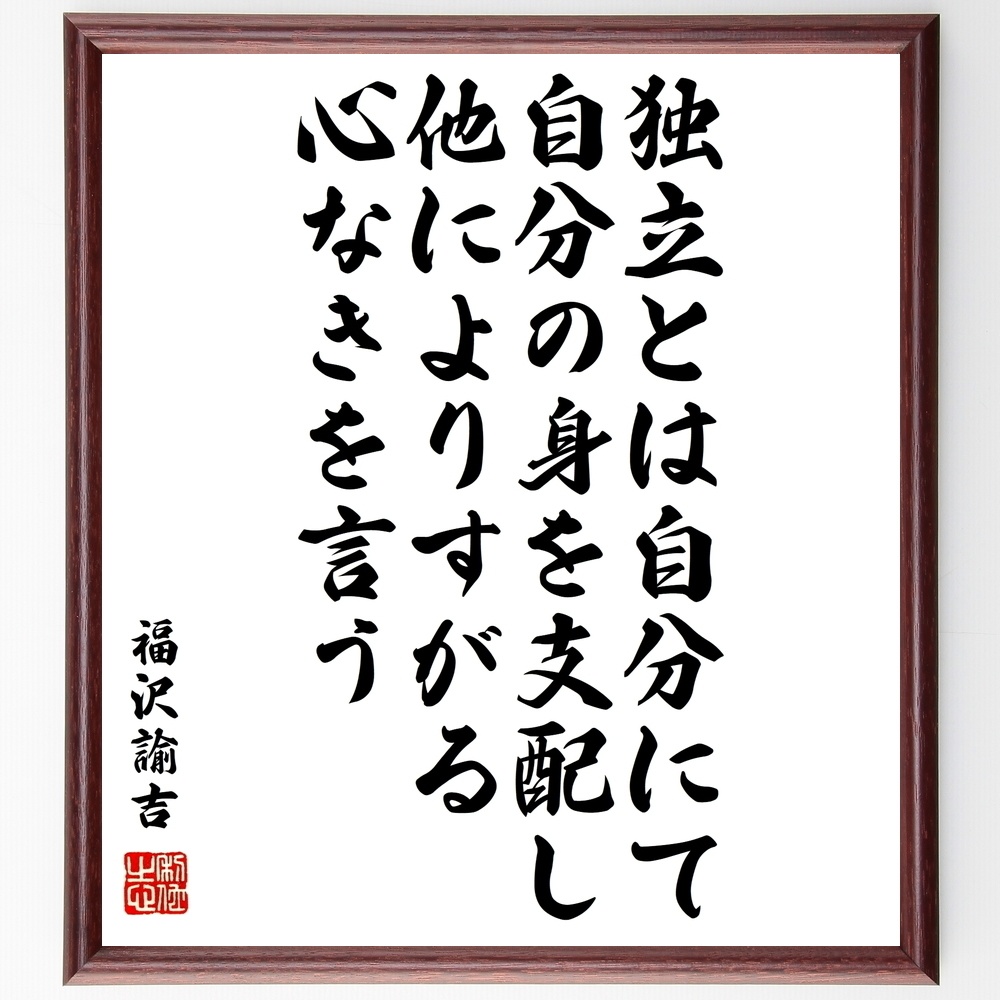 独立とは自分にて
自分の身を支配し
他によりすがる
心なきを言う
福沢諭吉